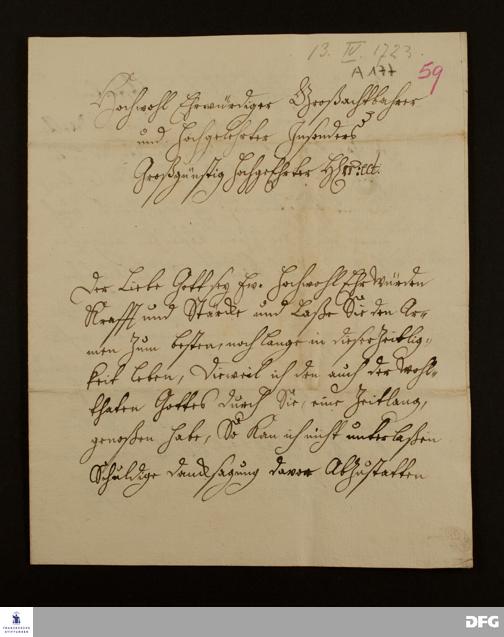 13. IV. 1723.
A 177
59
Hochwohl Ehrwürdiger Großachtbahrer
und Hochgelehrter Insonders
Großgünstig Hochgeehrter
Der Liebe Gott sey Ew. Hochwohl Ehrwürden
Krafft und Stärcke und Laße Sie den Ar-
men zum besten, noch lange in dieser Zeitlig-
keit Leben, Dieweil ich den auch der Wohl-
thaten Gottes durch Sie, eine Zeitlang,
genoßen habe, So kan ich nicht unterlaßen
Schuldige Dancksagung davor Abzustatten
FRANCKESCHE
STIFTUNGEN
DFG